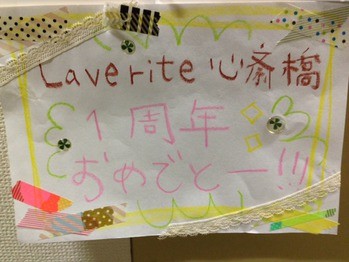 Laverite 心斎橋
1周年
おめでとー!!!